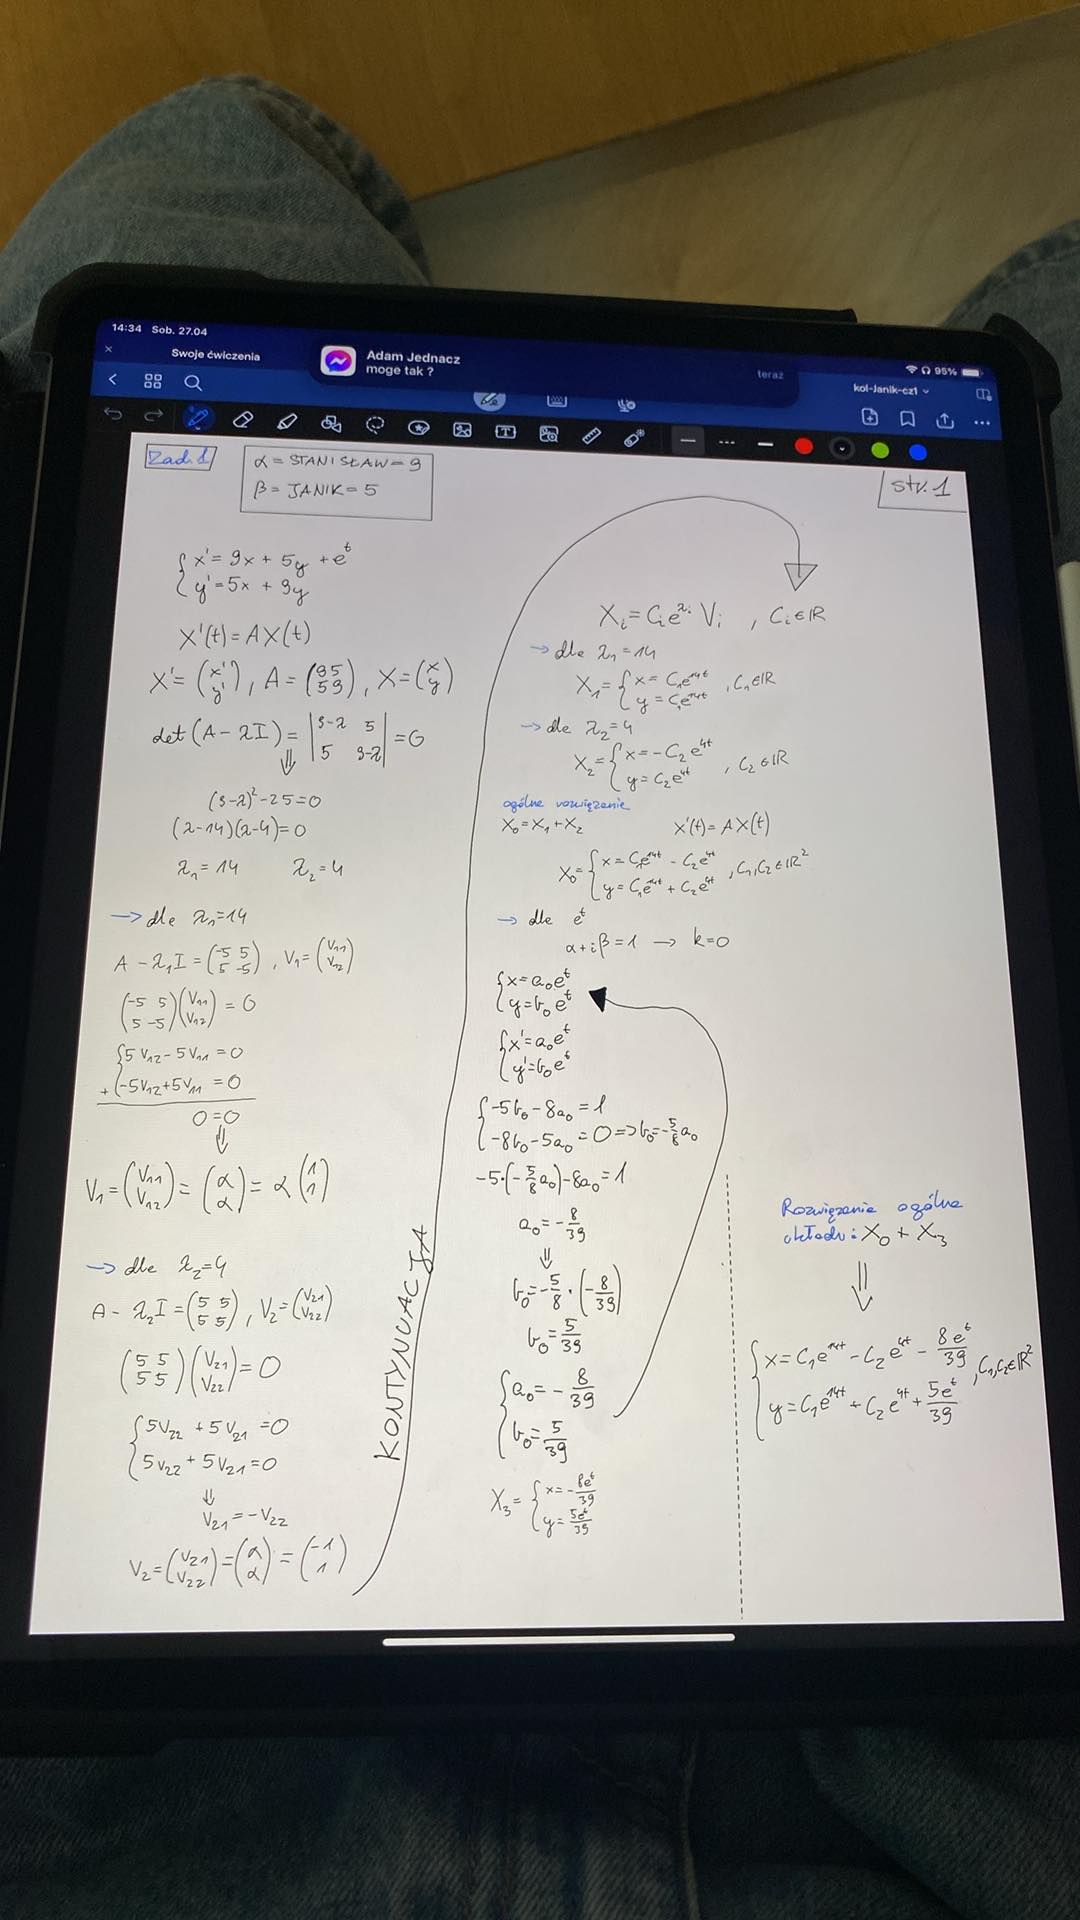 14:34 Sob. 27.04
Swoje ćwiczenia
Adam Jednacz
moge tak ?
teraz
95%
kol-Janik-cz1
Zad.1
α = STANISŁAW = 9
β = JANIK = 5
str. 1
{ x' = 9x + 5y + e^t
{ y' = 5x + 9y
X'(t) = AX(t)
X' = (x' y'), A = (9 5 5 9), X = (x y)
det(A - λI) = |9-λ 5 5 9-λ| = 0
⇓
(9-λ)² - 25 = 0
(λ-14)(λ-4) = 0
λ₁ = 14 λ₂ = 4
→ dla λ₁ = 14
A - λ₁I = (-5 5 5 -5), V₁ = (V₁₁ V₁₂)
(-5 5 5 -5)(V₁₁ V₁₂) = 0
{ 5V₁₂ - 5V₁₁ = 0
+ { -5V₁₂ + 5V₁₁ = 0
0 = 0
⇓
V₁ = (V₁₁ V₁₂) = (α α) = α(1 1)
→ dla λ₂ = 4
A - λ₂I = (5 5 5 5), V₂ = (V₂₁ V₂₂)
(5 5 5 5)(V₂₁ V₂₂) = 0
{ 5V₂₂ + 5V₂₁ = 0
{ 5V₂₂ + 5V₂₁ = 0
⇓
V₂₁ = -V₂₂
V₂ = (V₂₁ V₂₂) = (α α) = (-1 1)
KONTYNUACJA
Xᵢ = Cᵢe^λᵢ Vᵢ , Cᵢ ∈ ℝ
→ dla λ₁ = 14
X₁ = { x = C₁e^14t y = C₁e^14t , C₁ ∈ ℝ
→ dla λ₂ = 4
X₂ = { x = -C₂e^4t y = C₂e^4t , C₂ ∈ ℝ
ogólne rozwiązanie
X₀ = X₁ + X₂ X'(t) = AX(t)
X₀ = { x = C₁e^14t - C₂e^4t y = C₁e^14t + C₂e^4t , C₁,C₂ ∈ ℝ²
→ dla e^t
α + iβ = 1 → k = 0
{ x = a₀e^t
{ y = b₀e^t
{ x' = a₀e^t
{ y' = b₀e^t
{ -5b₀ - 8a₀ = 1
{ -8b₀ - 5a₀ = 0 => b₀ = -5/8 a₀
-5·(-5/8 a₀) - 8a₀ = 1
a₀ = -8/39
⇓
b₀ = -5/8 · (-8/39)
b₀ = 5/39
{ a₀ = -8/39
{ b₀ = 5/39
X₃ = { x = -8e^t/39 y = 5e^t/39
Rozwiązanie ogólne
układu: X₀ + X₃
⇓
{ x = C₁e^14t - C₂e^4t - 8e^t/39
{ y = C₁e^14t + C₂e^4t + 5e^t/39 , C₁,C₂ ∈ ℝ²